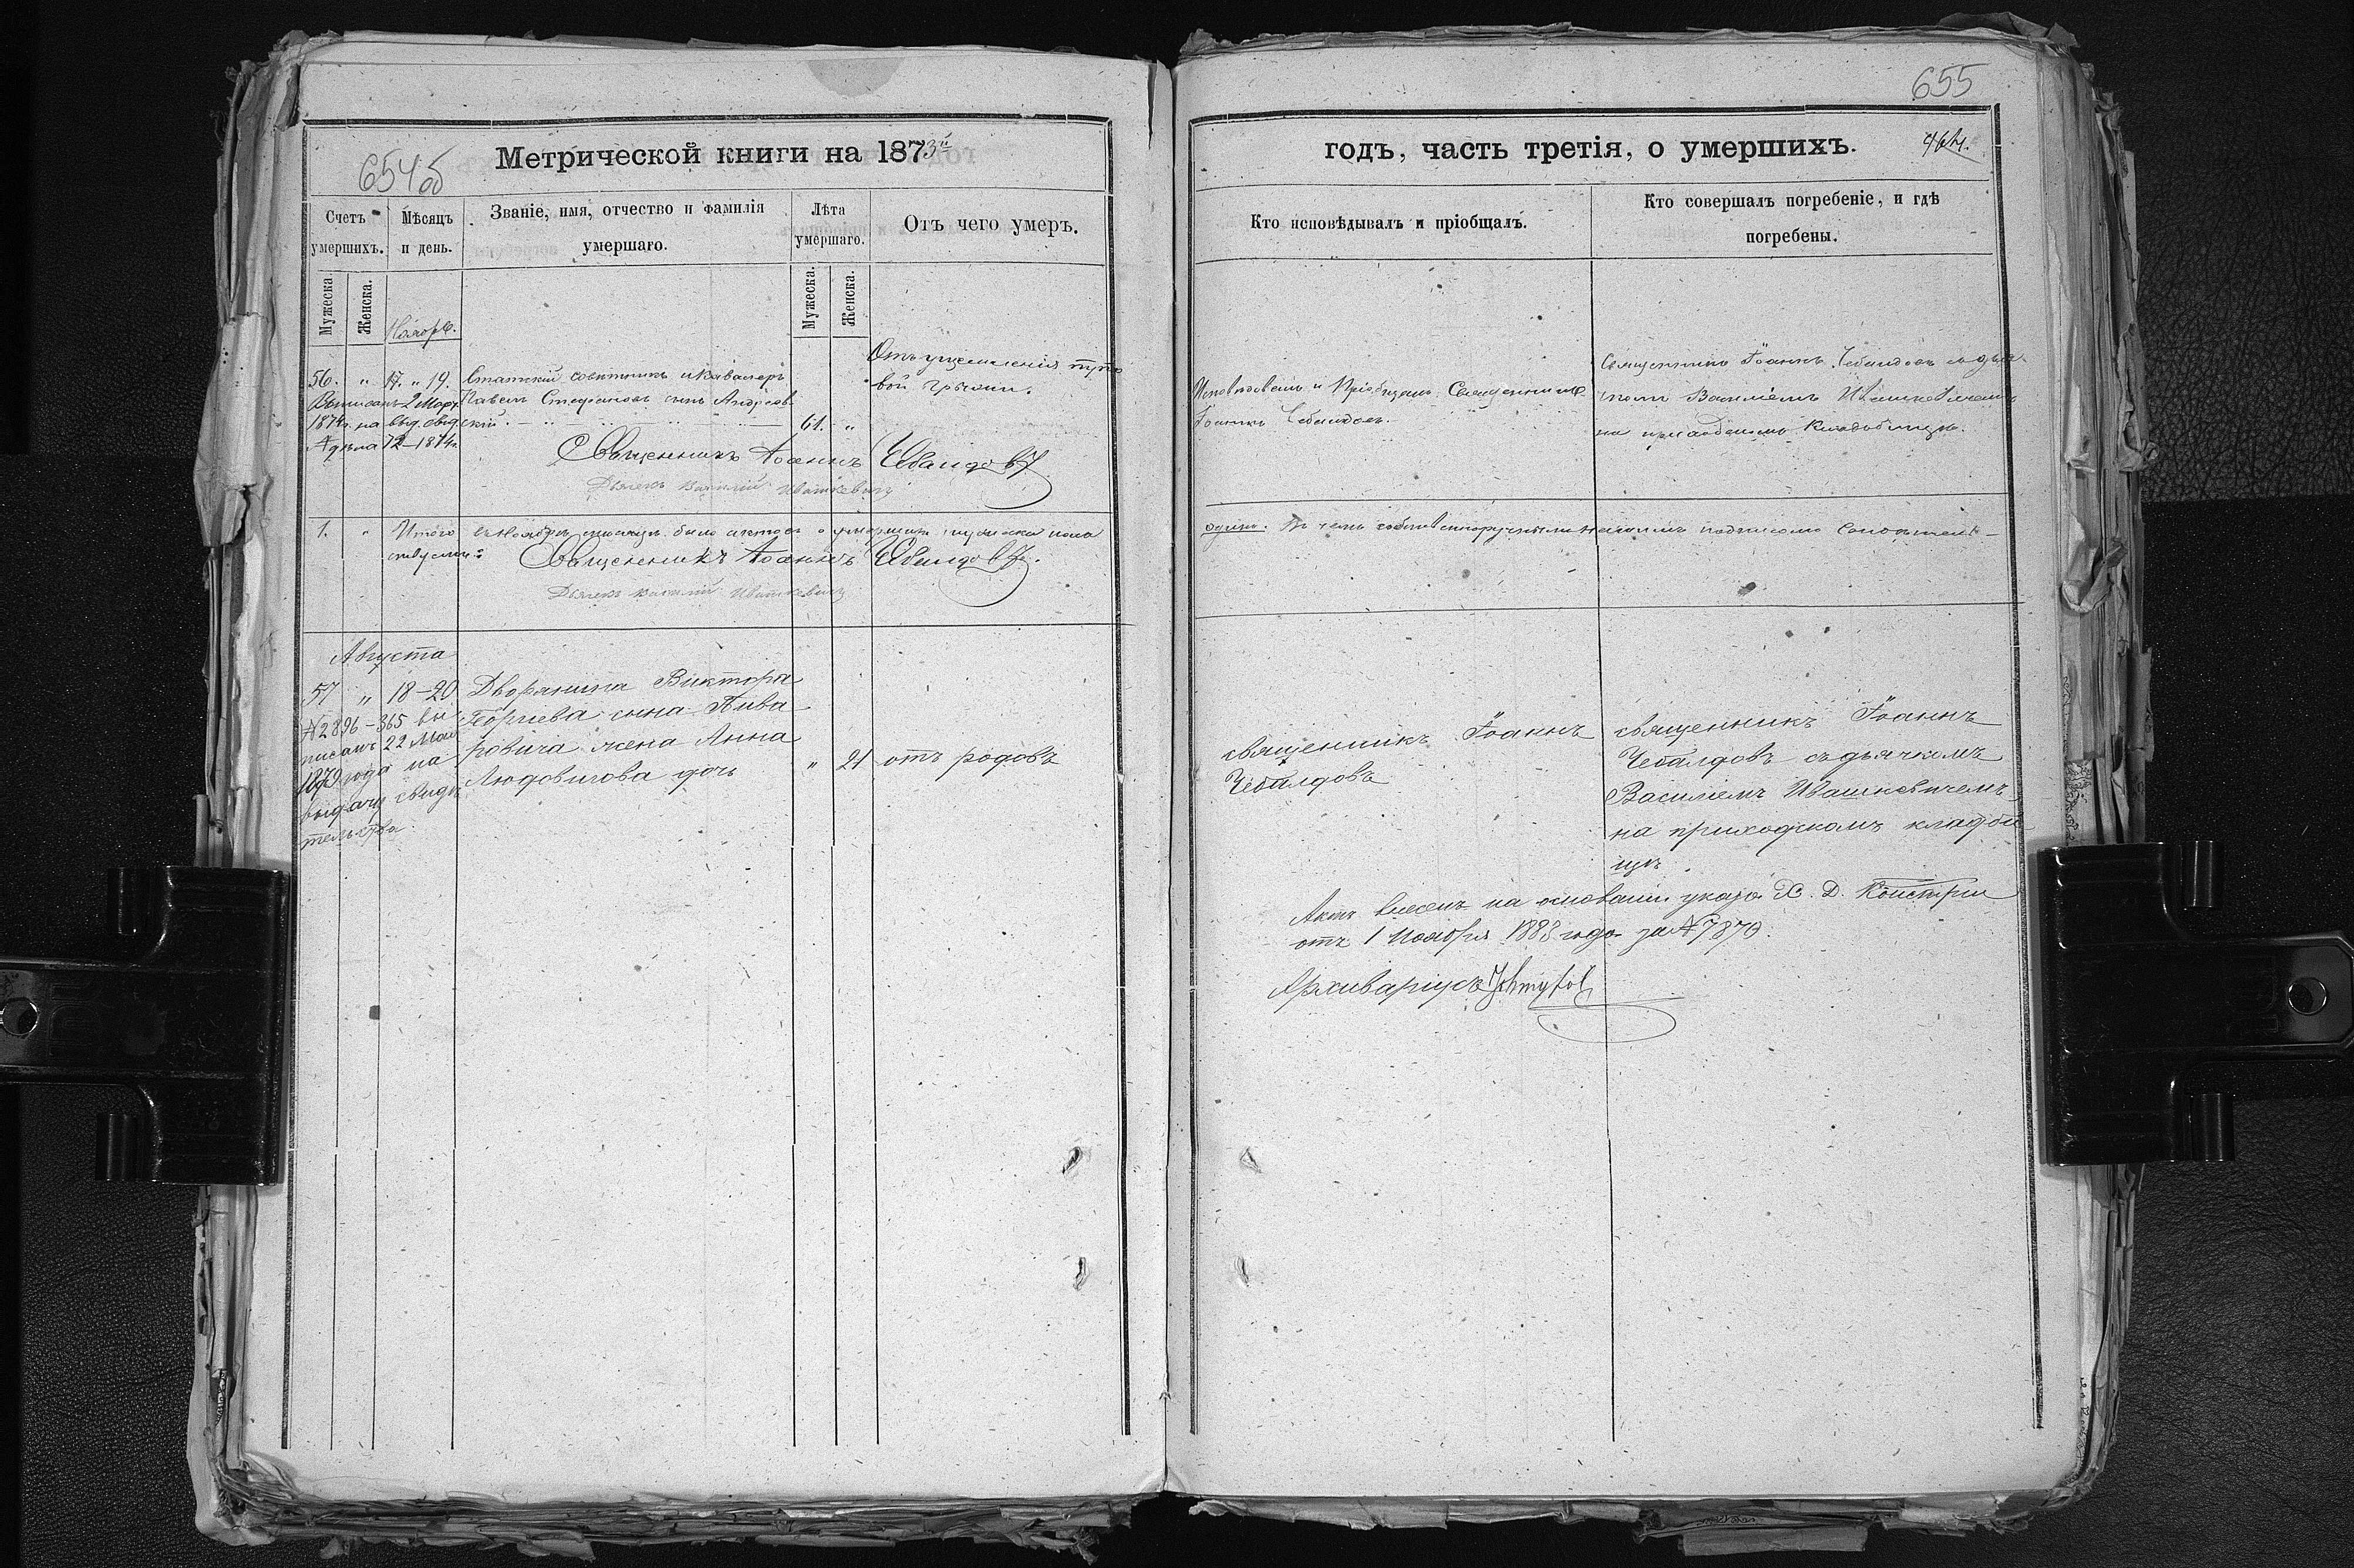 654об
Метрической книги на 1873й
Счетъ умершихъ.
Мѣсяцъ и день.
Званіе, имя, отчество и фамилія умершаго.
Лѣта умершаго.
Отъ чего умеръ.
Мужеска
Женска.
Ноябрь.
Мужеска.
Женска.
56. " 17. " 19. Статскій совѣтникъ и кавалеръ
Павелъ Стефановъ сынъ Андреев-
скій. 61. "
Отъ ущемленія
вой грыжи.
Выписанъ 2 Марта
1874г. на выд. свид.
№ дѣла 72–1874г.
Священникъ Іоаннъ Чебалдовъ
Дьячекъ Василій Ивашкевичъ
1. " Итого въ Ноябрѣ мѣсяцѣ было актовъ о умершихъ мужеска пола
Священникъ Іоаннъ Чебалдовъ.
Дьячекъ Василій Ивашкевичъ
Августа
57 " 18–20 Дворянина Виктора
Георгіева сына Пива-
ровича жена Анна
Людовигова дочь " 21 отъ родовъ
№2896–365 вы-
писанъ 22 Мая
1879 года на
выдачу свидѣ-
тельства.
655
годъ, часть третія, о умершихъ.
464.
Кто исповѣдывалъ и пріобщалъ.
Кто совершалъ погребеніе, и гдѣ
погребены.
Исповѣдовалъ и Пріобщалъ Священникъ
Іоаннъ Чебалдовъ.
Священникъ Іоаннъ Чебалдовъ съ дья-
чкомъ Василіемъ Ивашкевичемъ
на приходскомъ Кладбищѣ.
одинъ. Въ чемъ собственноручнымъ нашимъ подписомъ
священникъ Іоаннъ
Чебалдовъ
священникъ Іоаннъ
Чебалдовъ съ дьячкомъ
Василіемъ Ивашкевичемъ
на приходскомъ кладби-
щѣ.
Актъ внесенъ на основаніи указа Х. Д. Консторіи
отъ 1 Ноября 1883 года за №7879.
Архиваріусъ